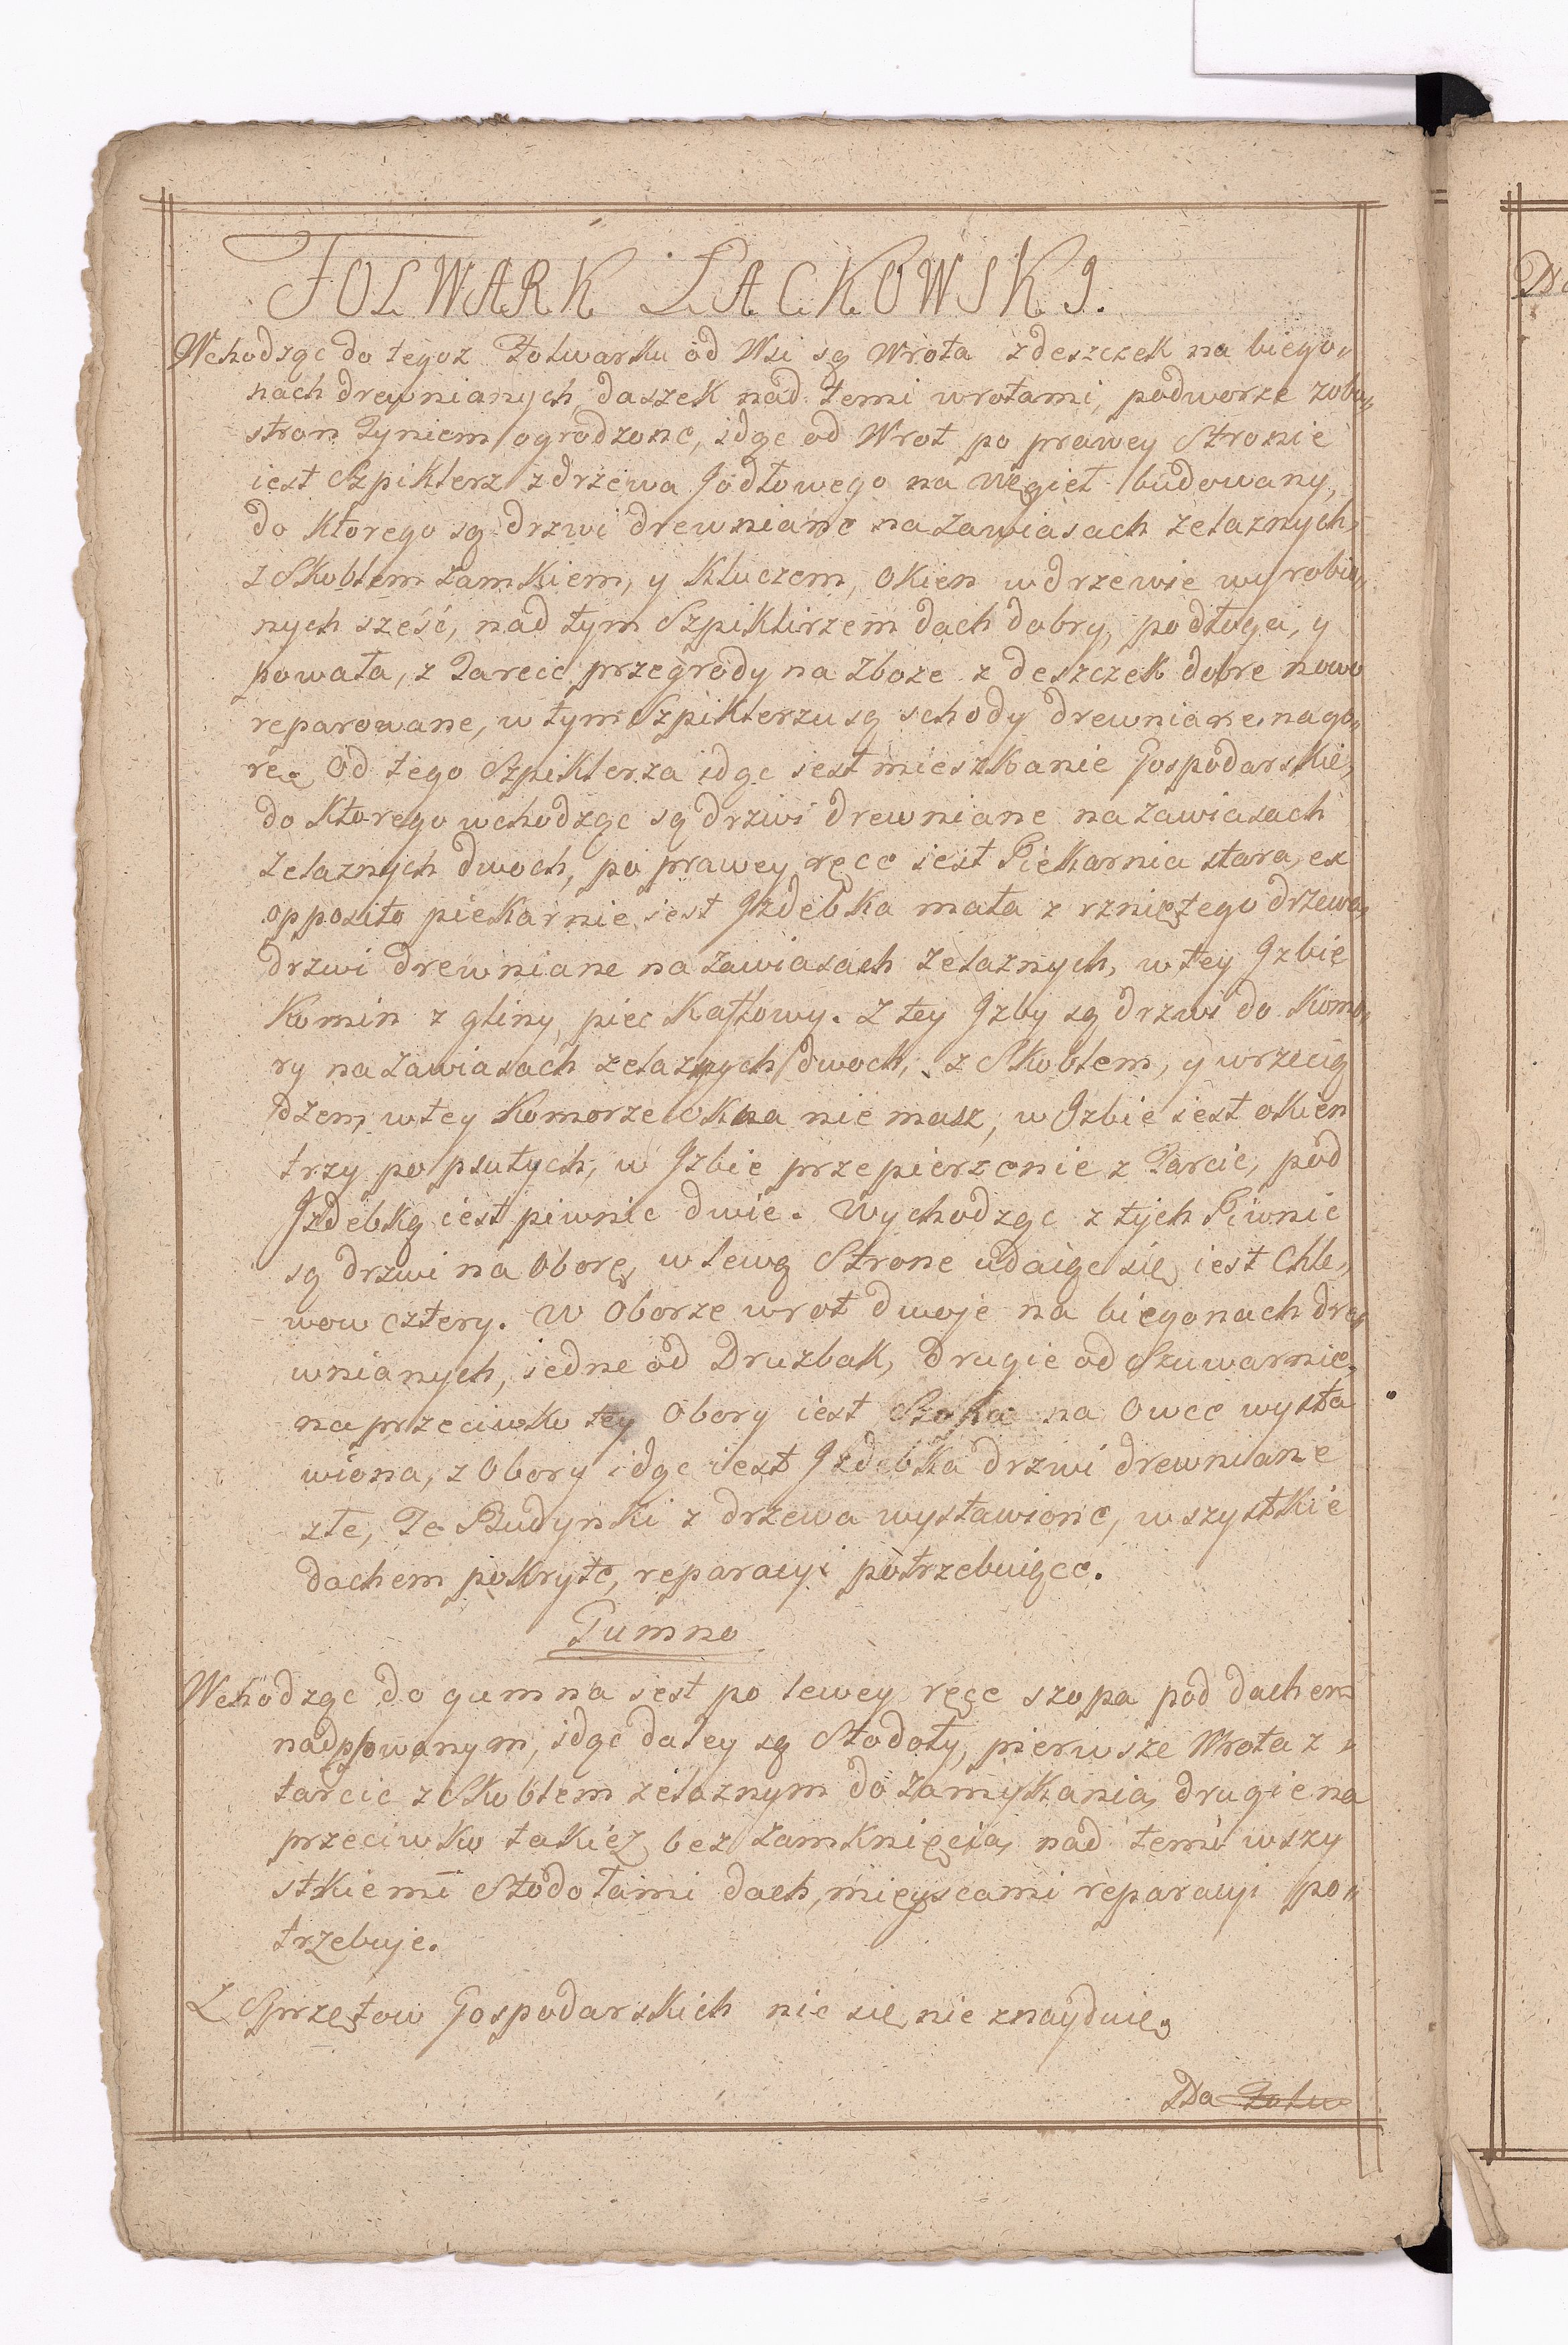 FOLWARK LACKOWSKI.
Wchodząc do tegoz Folwarku od Wsi są Wrota z deszczek na biego„
nach drewnianych, daszek nad temi wrotami, podworze zobu„
stron Tyniem ogrodzone, idąc od Wrot po prawey Stronie
iest Szpiklerz z drzewa Jodłowego na Węgieł budowany,
do ktorego są drzwi drewniane na Zawiasach zelaznych,
z Skoblem zamkiem, y Kluczem, Okien w drzewie wyrobio„
nych sześć, nad tym Szpiklirzem dach dobry, podłoga, y
powała, z Tarcic przegrody na Zboze z deszczek dobre nowo
reparowane, w tym Szpiklerzu są schody drewniane na go„
rę. Od tego Szpiklerza idąc iest mieszkanie Gospodarskie,
do Ktorego wchodząc są drzwi drewniane na zawiasach
Zelaznych dwoch, po prawey ręce iest Piekarnia stara, ex
opposito piekarnie iest Izdebka mała z rzniętego drzewa,
drzwi drewniane na Zawiasach Zelaznych, w tey Izbie
Komin z gliny, piec Kaflowy. Z tey Izby są drzwi do Komo„
ry na Zawiasach zelaznych dwoch, z Skoblem, y wrzecią
dzem, w tey Komorze okna nie masz, w Izbie iest okien
trzy popsutych, w Izbie przepierzenie z Tarcic, pod
Izdebką iest piwnic dwie. Wychodząc z tych Piwnic
są drzwi na Oborę, w lewą Stronę udaiąc się, iest Chle„
wow cztery. W Oborze wrot dwoje na biegonach dre„
wnianych, iedne od Druzbak, drugie od Szuwarnie,
na przeciwko tey Obory iest Szopa na Owce wysta
wiona, z Obory idąc iest Izdebka drzwi drewniane
złe, Te Budynki z drzewa wystawione, wszystkie
dachem pokryte, reparacyi potrzebuiące.
Gumno
Wchodząc do gumna iest po lewey ręce szopa pod dachem
nadpsowanym, idąc daley są Stodoły, pierwsze Wrota z
tarcic z Skoblem zelaznym do Zamykania, drugie na
przeciwko takiez bez zamknięcia, nad temi wszy
stkiemi Stodołami dach, mieyscami reparacyi po„
trzebuje.
Z Sprzętow Gospodarskich nic się nie znayduie.
Da